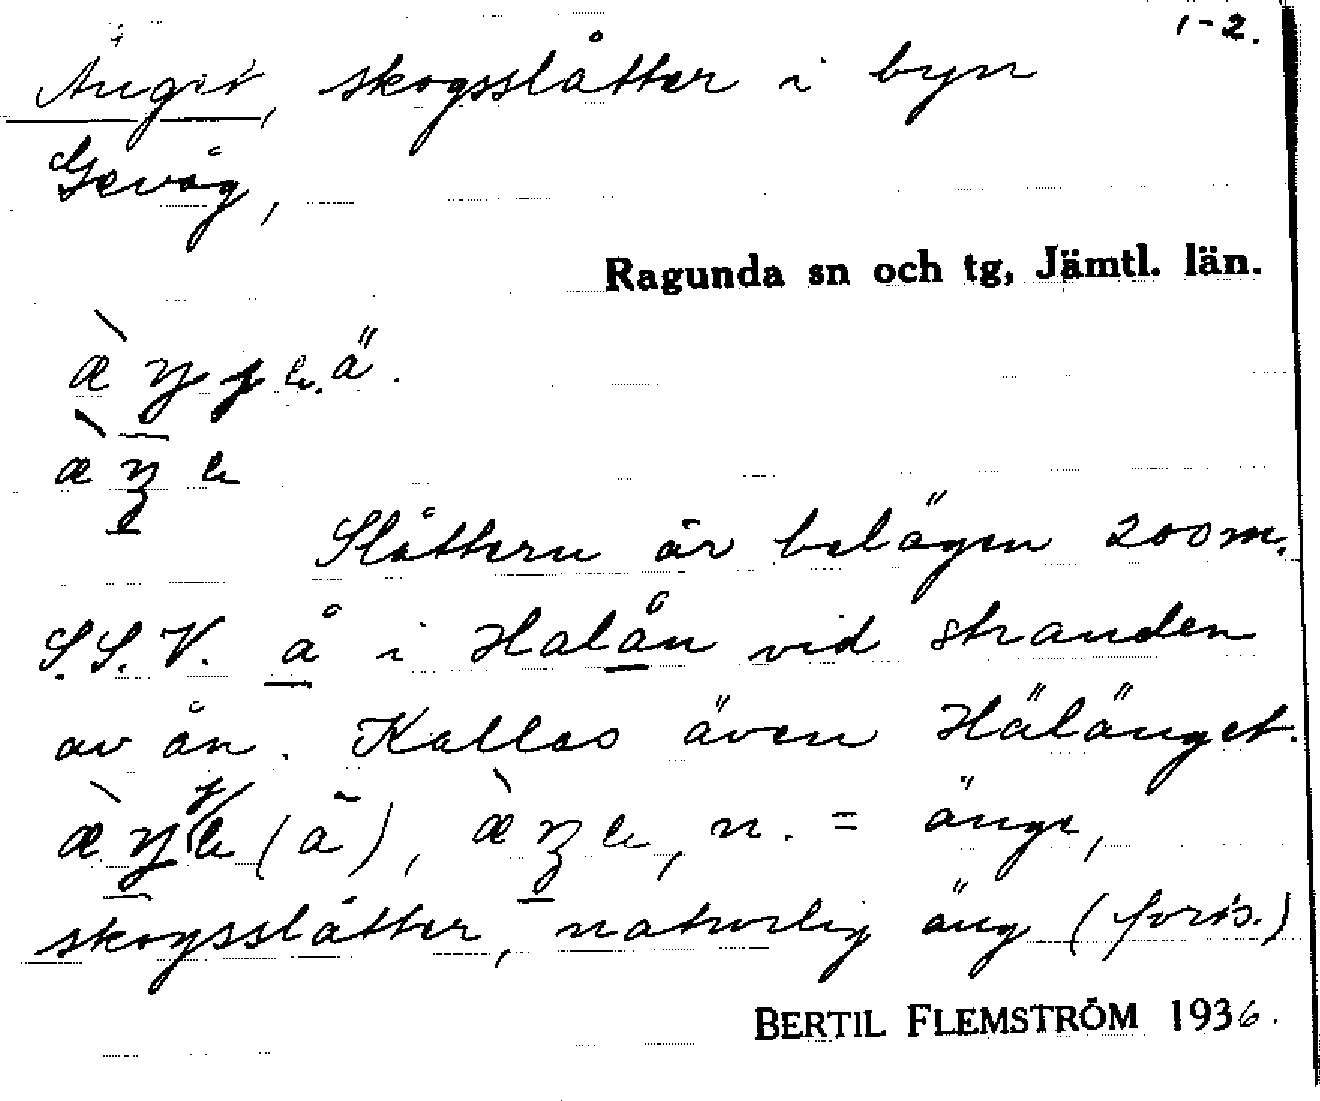 1-2.
Ängiö, skogsslåtter i byn
Gevåg,
Ragunda sn och tg, Jämtl. län.
Slåttern är belägen 200 m.
S.S.V. å i Halån vid stranden
av ån. Kallas även Hälänget.
n. = änge,
skogsslåtter, naturlig äng (foris.)
BERTIL FLEMSTRÖM 1936.